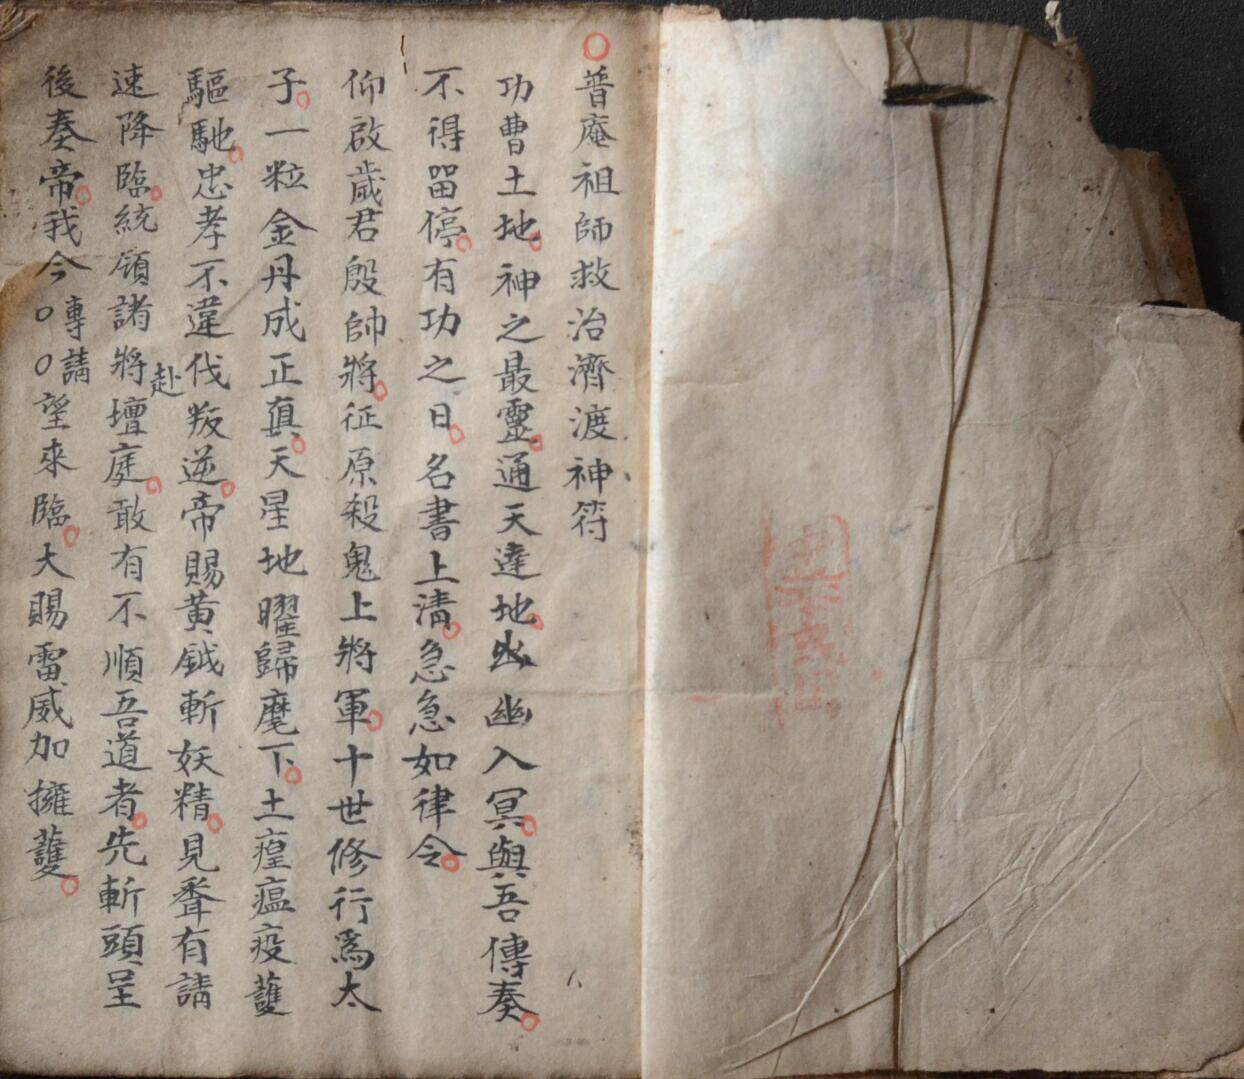 ○普庵祖師救治濟渡神符
功曹土地○神之最靈○通天達地○出幽入冥○與吾傳奏○
不得留停○有功之日○名書上清○急急如律令○
仰啟歲君殷帥將○征原殺鬼上將軍○十世修行為太
子○一粒金丹成正真○天星地曜歸麾下○土瘟疫護
驅馳○忠孝不違伐叛逆○帝賜黃鉞斬妖精○見聲有請
速降臨○統領諸將赴壇庭○敢有不順吾道者○先斬頭呈
後奏帝○我今○○傳請望來臨○大賜雷威加擁護○